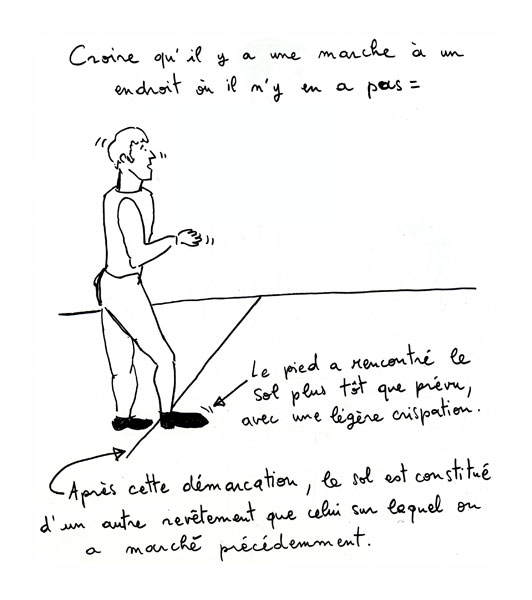 Croire qu'il y a une marche à un
endroit où il n'y en a pas =
Le pied a rencontré le
sol plus tôt que prévu,
avec une légère crispation.
Après cette démarcation, le sol est constitué
d'un autre revêtement que celui sur lequel on
a marché précédemment.